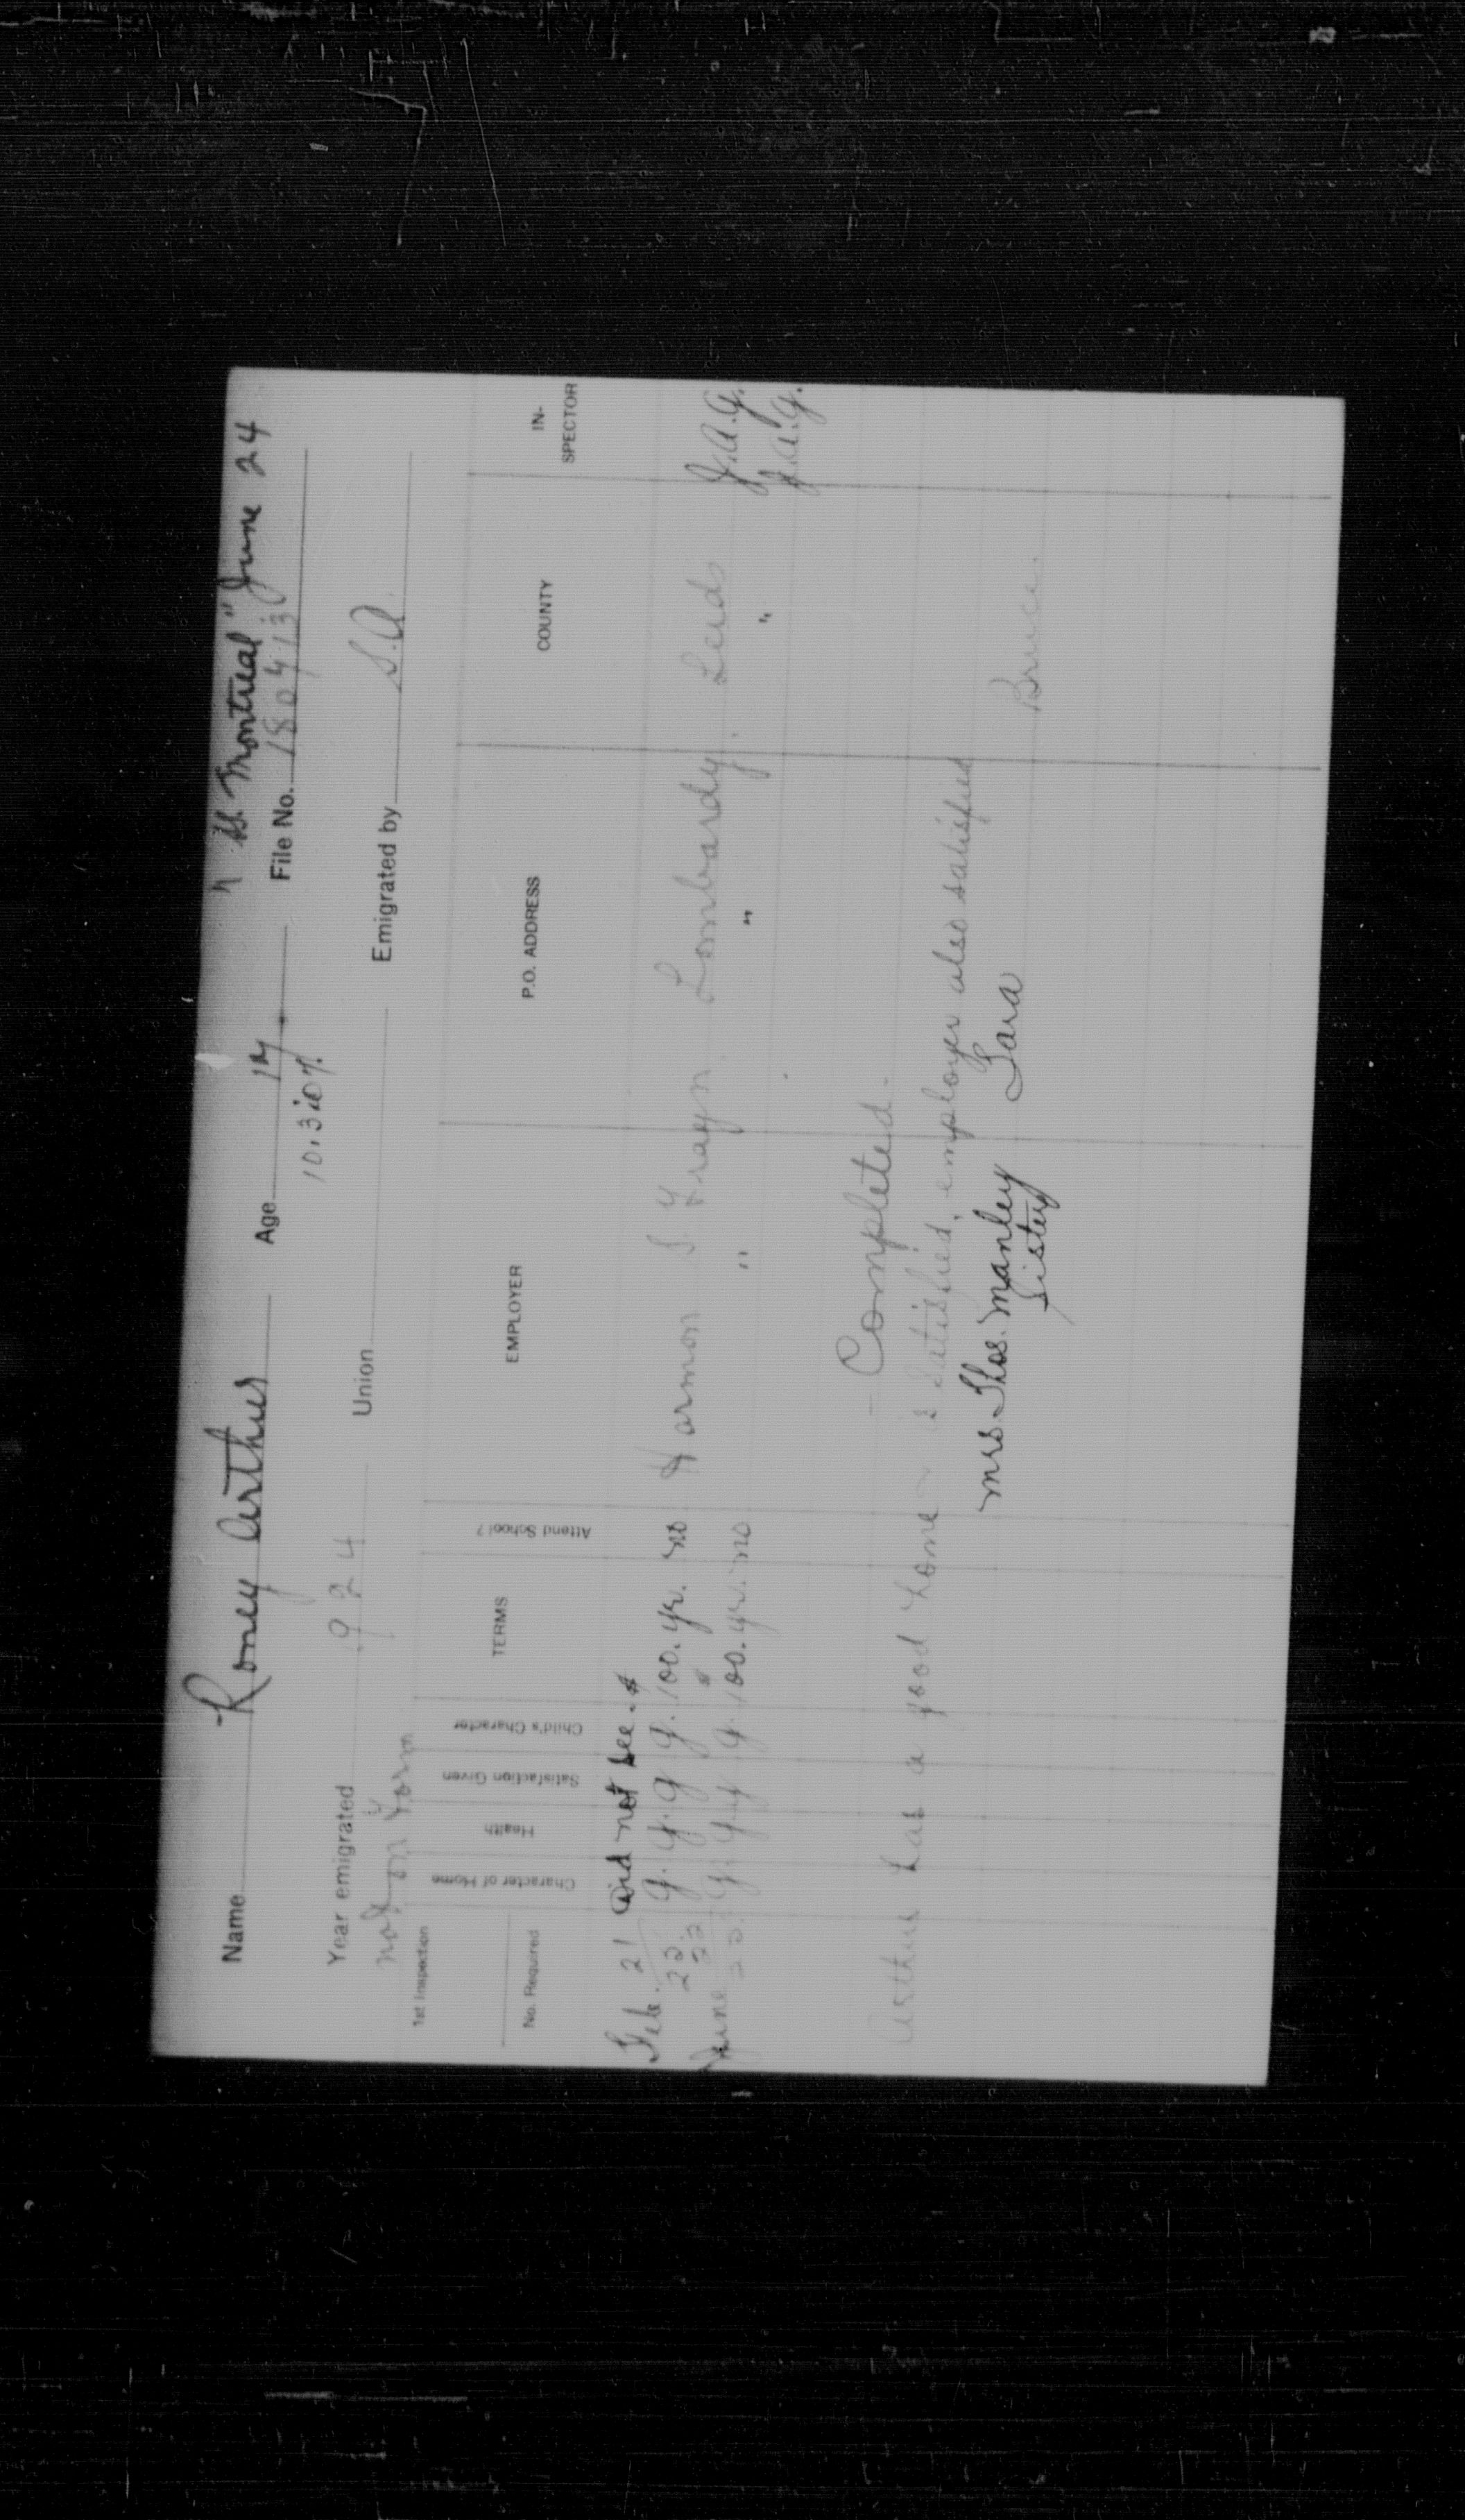 " SS. Montreal" June 24
Name Roney Arthur Age 14 File No. 180413
10.3.07.
Year emigrated 1924 Union Emigrated by S.A.
not on Form
1st Inspection
No. Required
Character of Home Health Satisfaction Given Child's Character TERMS Attend School? EMPLOYER P.O. ADDRESS COUNTY IN-SPECTOR
Feb. 21 Did not see.
23. g. g. g g. $100. yr. no Harmon S. Lombardy. Leeds J.A.G.
June 22
23. g. g. g g. $100. yr. no " " " J.A.G.
Completed.
Arthur has a good home is satisfied, employer also satisfied
Mrs. Thos. Manley Tara Bruce.
Sister